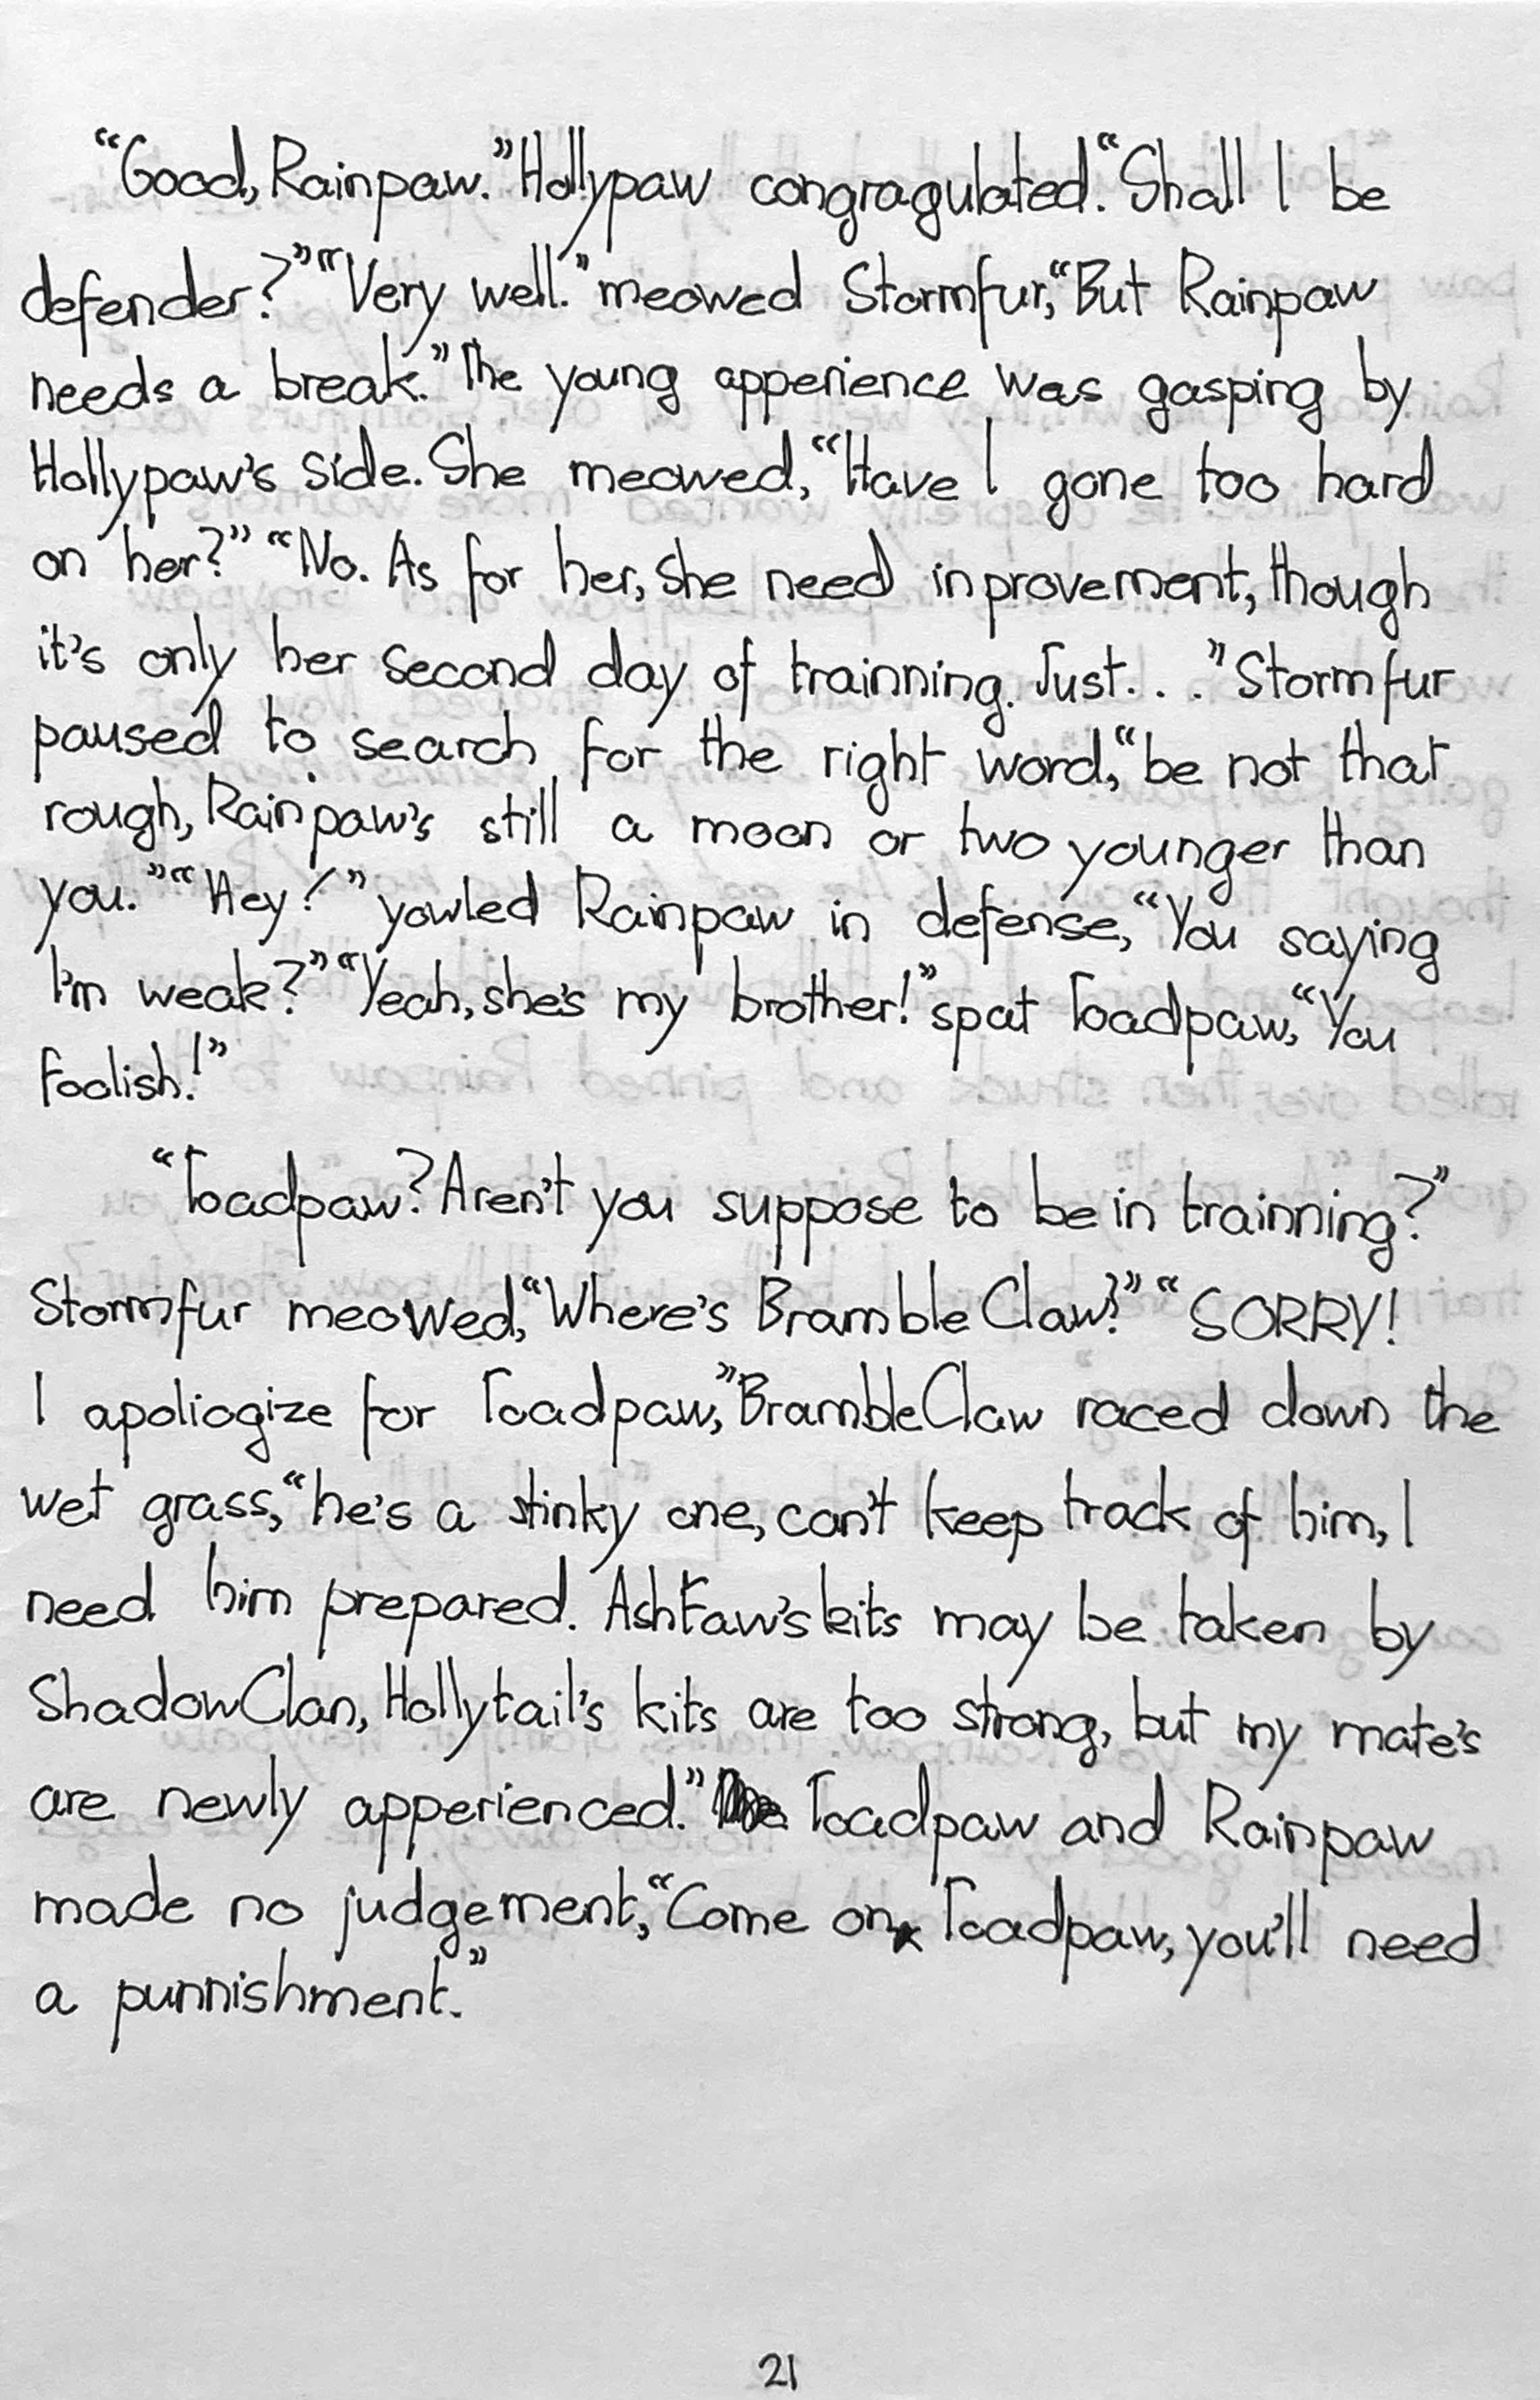 “Good, Rainpaw.” Hollypaw congragulated. “Shall I be
defender?” “Very well.” meowed Stormfur, “But Rainpaw
needs a break.” The young apperience was gasping by
Hollypaw's side. She meowed, “Have I gone too hard
on her?” “No. As for her, she need inprovement, though
it's only her second day of trainning. Just. . .” Stormfur
paused to search for the right word, “be not that
rough, Rainpaw's still a moon or two younger than
you.” “Hey!” yowled Rainpaw in defense, “You saying
I'm weak?” “Yeah, she's my brother!” spat Toadpaw, “You
foolish!”
“Toadpaw? Aren't you suppose to be in trainning?”
Stormfur meowed, “Where's BrambleClaw?” “SORRY!
I apoliogize for Toadpaw,” BrambleClaw raced down the
wet grass, “he's a stinky one, can't keep track of him, I
need him prepared. AshFaw's kits may be taken by
ShadowClan, Hollytail's kits are too strong, but my mate's
are newly apperienced.” Toadpaw and Rainpaw
made no judgement, “Come on, Toadpaw, you'll need
a punnishment.”
21